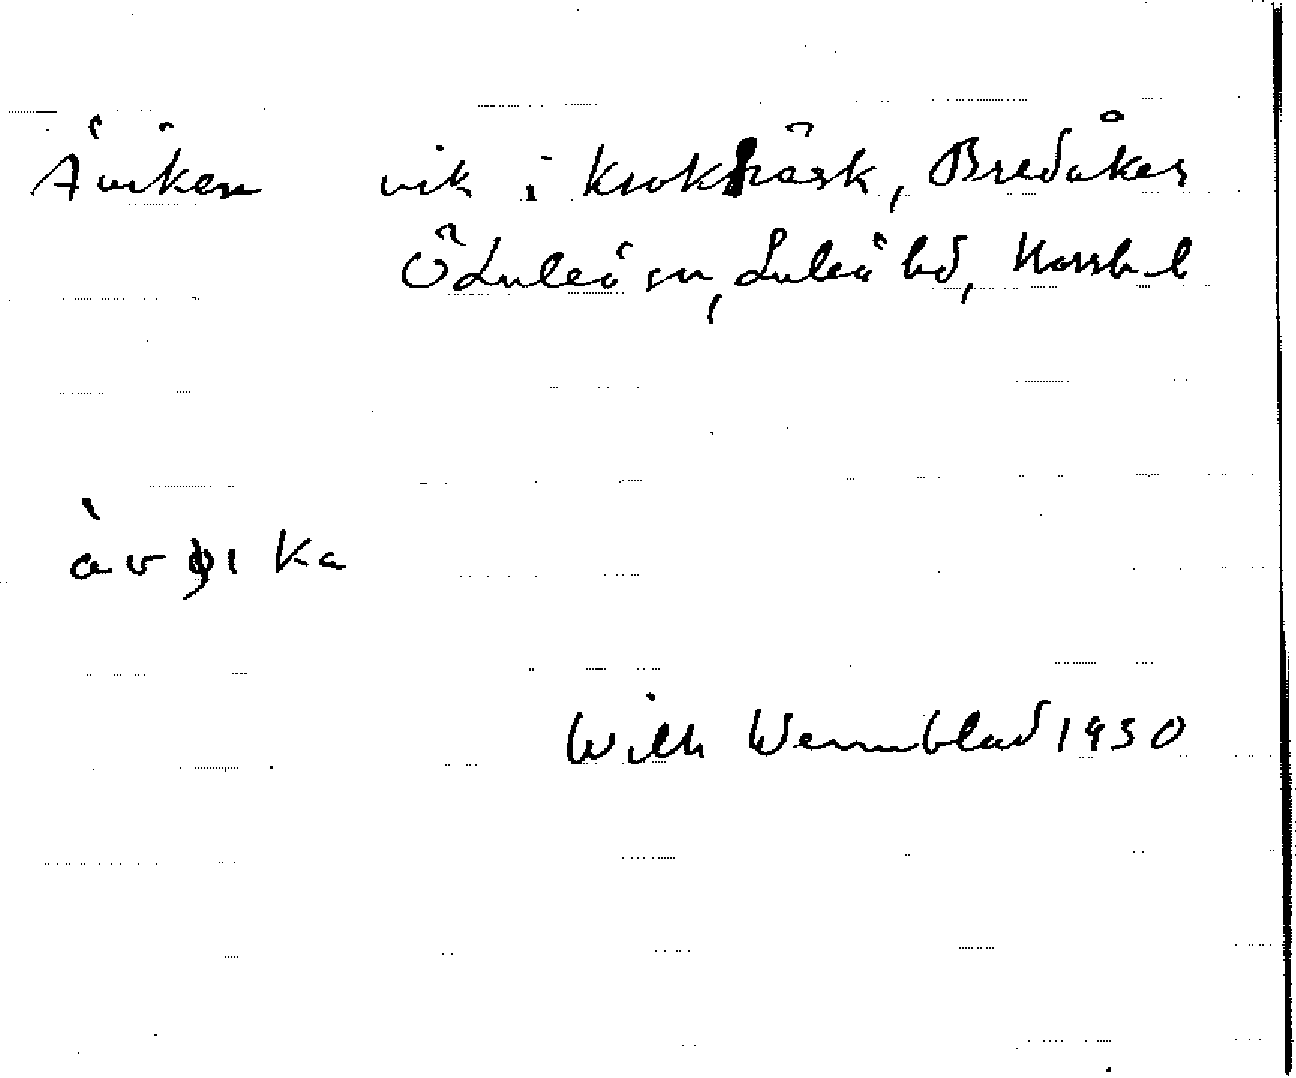 Åviken vik i Krokträsk, Bredåker
ÖLuleå sn, Luleå hd, Norrb l
àv ika
Wilh Wennblad 1930